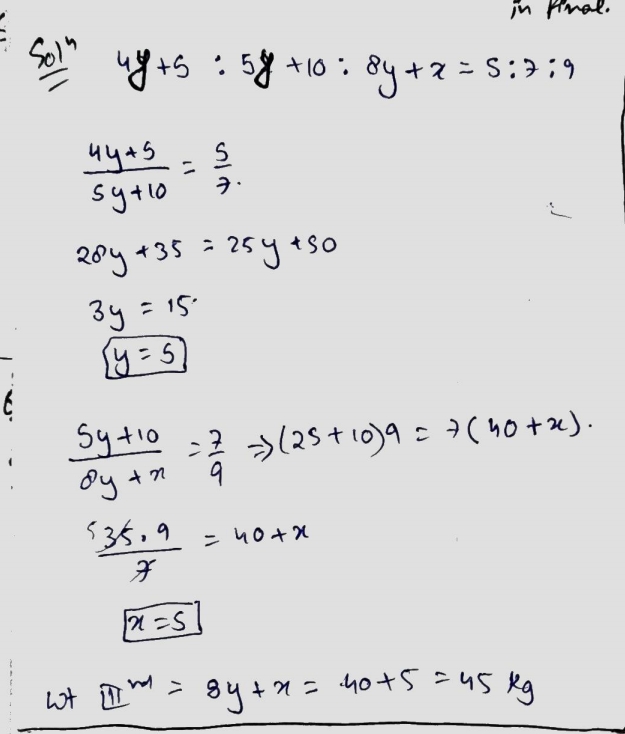 in final.
Solⁿ 4y+5 : 5y+10 : 8y+x = 5:7:9
4y+5/5y+10 = 5/7.
28y+35 = 25y+50
3y = 15
y=5
5y+10/8y+x = 7/9 ⇒ (25+10)9 = 7(40+x).
5 35.9/7 = 40+x
x=5
wt IIIrd = 8y+x = 40+5 = 45 kg